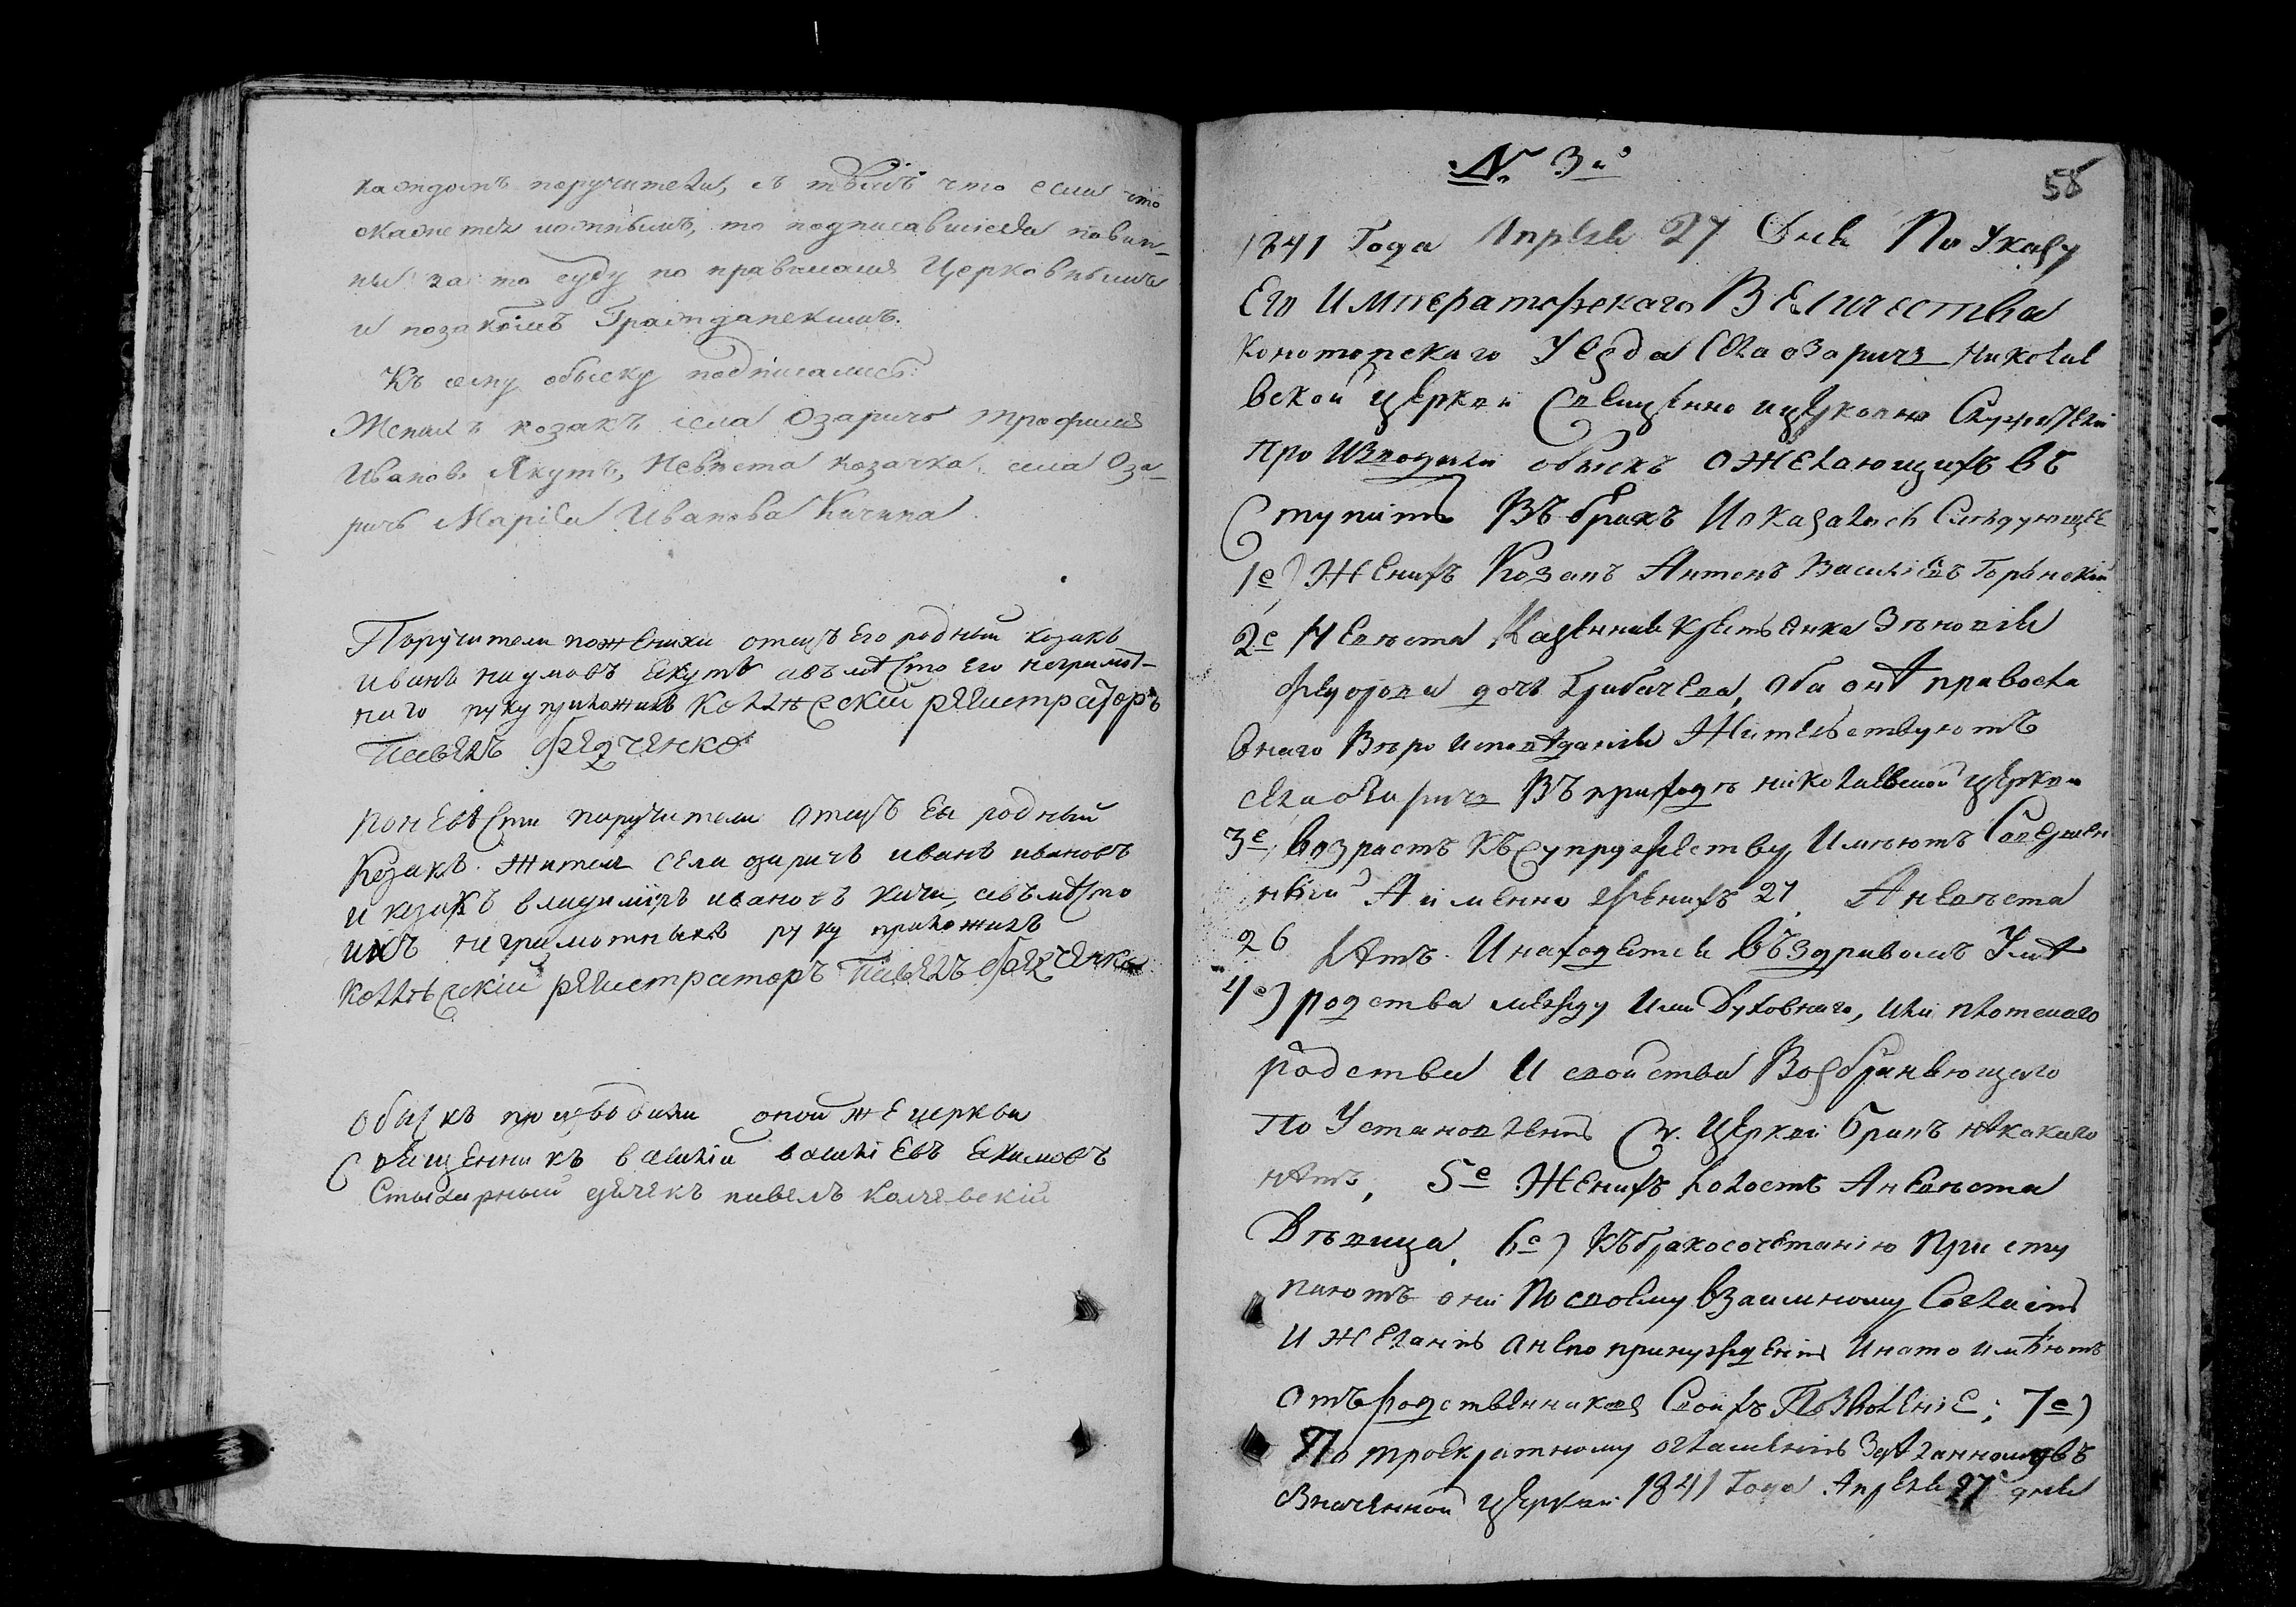 каждомъ поручители, съ тѣмъ что если что
окажется ложнымъ, то подписавшіеся повин-
ны за то суду по правиламъ Церковнымъ
и позакономъ Гражданскимъ.
Къ сему обыску подписались:
Женихъ козакъ села Озаричъ Трофимъ
Ивановъ Якутъ, Невѣста козачка села Оза-
ричъ Марія Иванова Кичина
Поручители пожениху отецъ Его родный козакъ
иванъ наумовъ Екутъ авъмѣсто его неграмот-
наго руку приложилъ Коллежскій регистраторъ
Павелъ Федченко
поневѣсти поручители отецъ Ея родный
козакъ житель села озаричъ иванъ ивановъ
и козакъ владиміръ ивановъ кича, авъмѣсто
ихъ неграмотныхъ руку приложилъ
коллежскій регистраторъ Павелъ Федченко
обыскъ производили оной же церкви
Священникъ василій василіевъ Екимовъ
Стихарный дячекъ павелъ
№ 3й
58
1841 Года Апрѣля 27 Дня По Указу
Его Императорскаго Величества
Конотопскаго Уезда Села озаричъ Николае
вской церкви Священно ицерковно Служители
производили обыскъ ожелающихъ вс
тупить Въ бракъ Иоказалось Слѣдующее
1е) Женихъ Козакъ Антонъ Василіевъ
2е Невѣста Казенная крестьянка Зѣновія
федорова дочь, оба онѣ правосла
внаго Вѣро исповѣданія Жительствуютъ
села озаричъ Въ приходѣ николаевской церкви
3е, возрастъ Къ супружеству Имѣютъ Совершен
ный А именно женихъ 27, А невѣста
26 лѣтъ. Инаходятся въздравомъ Умѣ
4е) родства между Ими Духовнаго, или плотскаго
родства И свойства Возбраняющаго
по Установленію Св. Церкви бракъ нѣкакого
нѣтъ, 5е Женихъ холостъ Аневѣста
Дѣвица, 6е) Къбракосочетанію Присту
паютъ они По своему взаимному Согласію
и желанію анепо принужденію Инато имѣютъ
отъ родственниковъ Своихъ Позволеніе; 7е)
По троекратному оглашенію Здѣланномувъ
Значенной церкви 1841 Года Апреля 27 дня